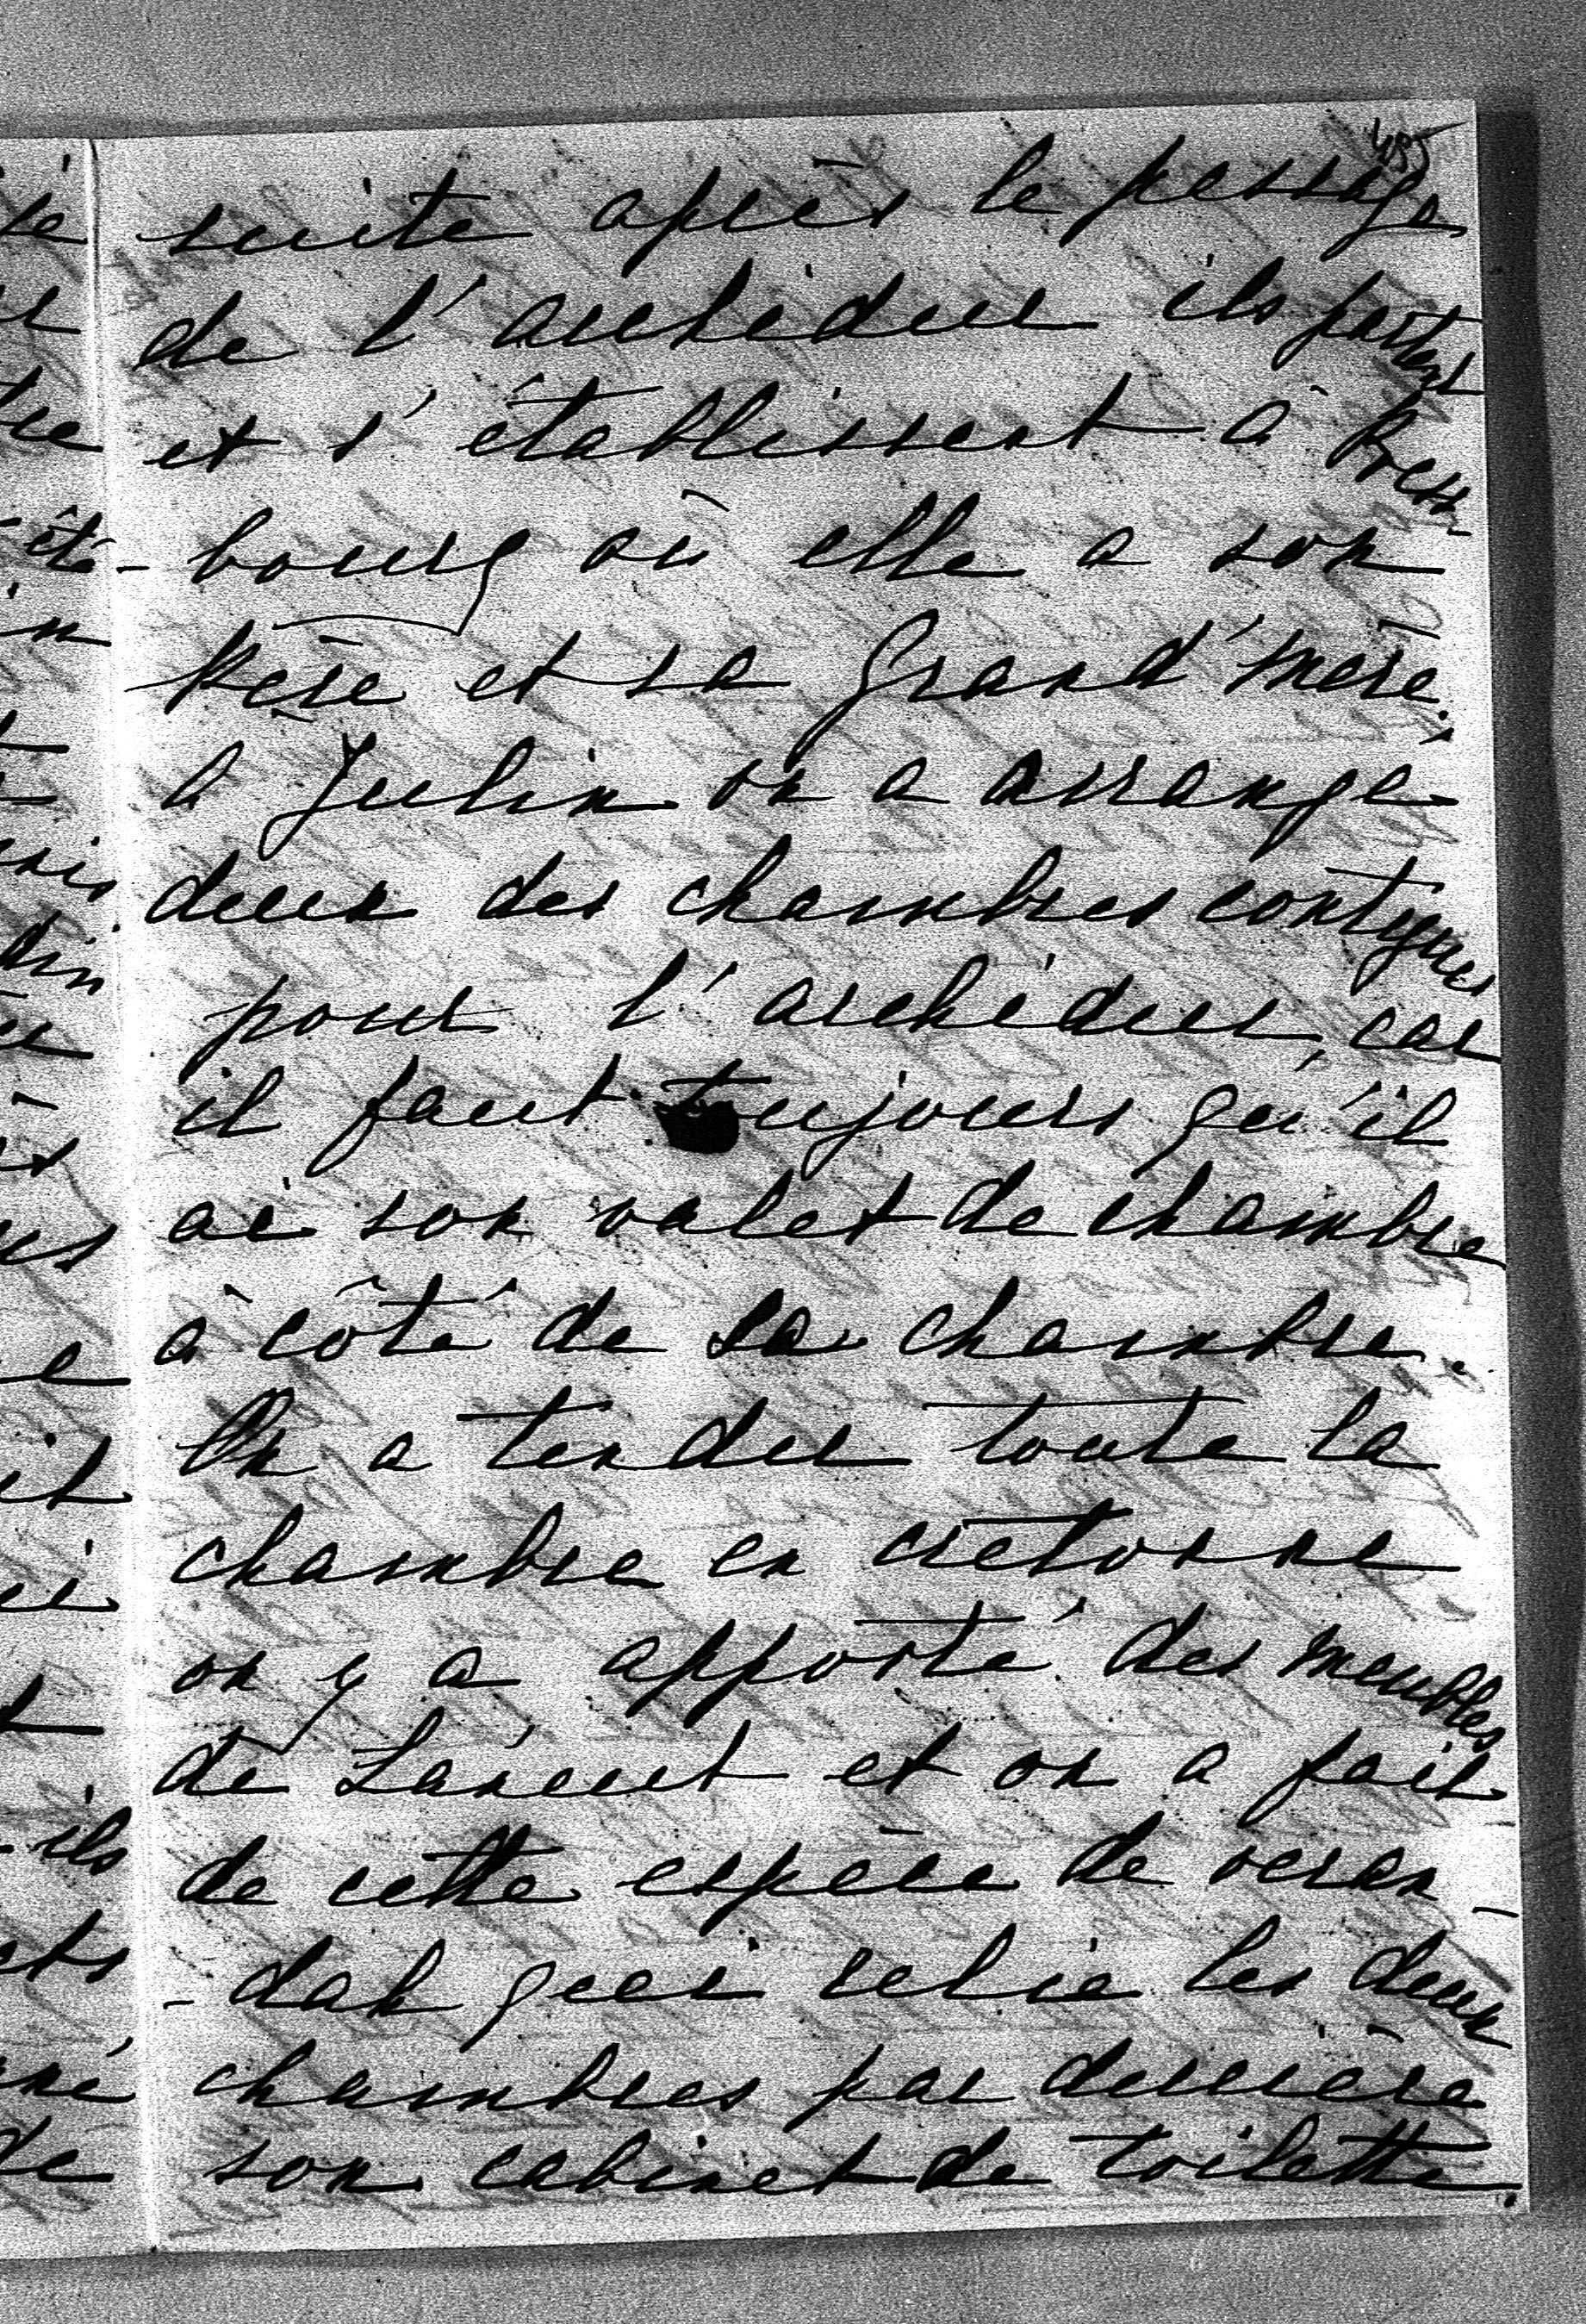 485
suite après le passage
de l'archiduc ils partent
et s'établissent à Press-
bourg où elle a son
Père et sa Grand'mère.
A Jublin on a arrangé
deux des chambres contigues
pour l'archiduc, car
il faut toujours qu'il
ai son valet de chambre
à côté de sa chambre.
On a tendu toute la
chambre en cretonne
on y a apporté des meubles
de Lancut et on a fait
de cette espèce de veran-
-dah qui relie les deux
chambres par derrière
son cabinet de toilette.